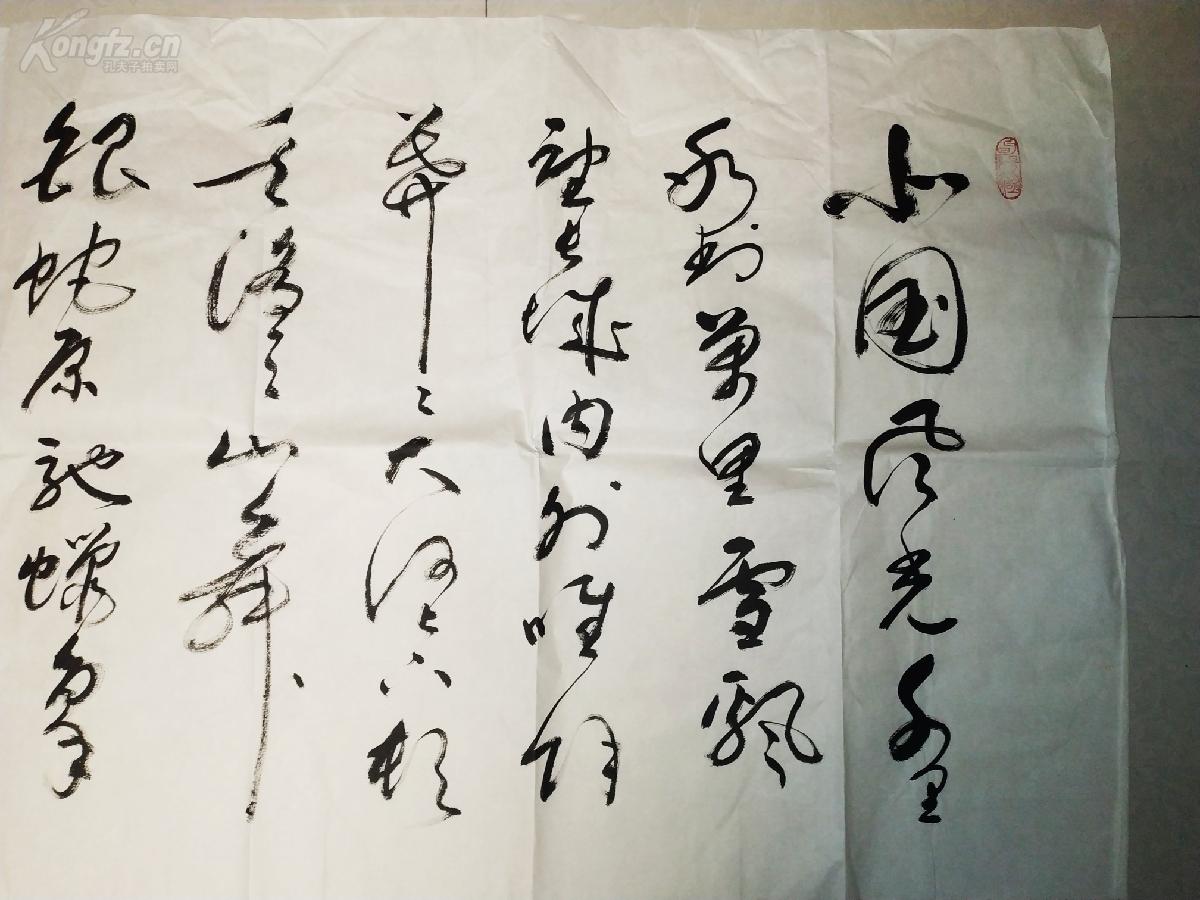 北国风光千里
冰封萬里雪飘
望长城内外唯馀
莽〻大河上下顿
失滔〻山舞
银蛇原驰蠟象
Kongfz.cn
孔夫子拍卖网